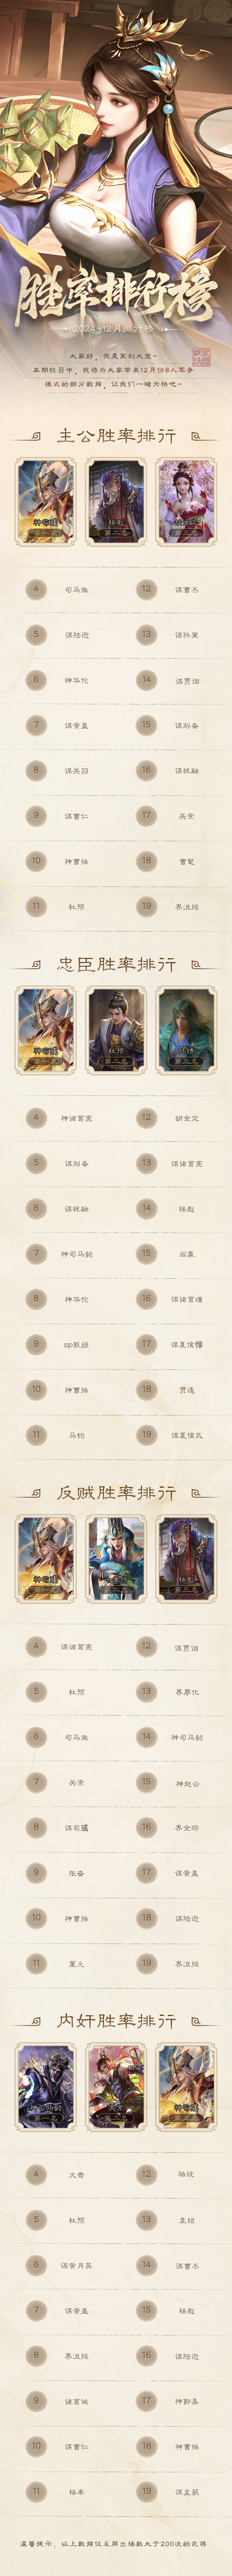 胜率排行榜
2024-12月排行榜
大家好，我是策划大宝~
本期栏目中，我将为大家带来12月份8人军争
模式的部分数据，让我们一睹为快吧~
主公胜率排行
神司马懿
杨彪
第一名
第二名
第三名
4 司马徽
12 谋曹丕
5 谋陆逊
13 谋孙策
6 神华佗
14 谋贾诩
7 谋黄盖
15 谋刘备
8 谋关羽
16 谋祝融
9 谋曹仁
17 关索
10 神曹操
18 曹髦
11 杜预
19 界沮授
忠臣胜率排行
杜预
第一名
第二名
第三名
4 神诸葛亮
12 胡金定
5 谋刘备
13 谋诸葛亮
6 谋祝融
14 杨彪
7 神司马懿
15 阎象
8 神华佗
16 谋诸葛瑾
9 sp甄姬
17 谋夏侯惇
10 神曹操
18 贾逵
11 马钧
19 谋夏侯氏
反贼胜率排行
杨彪
第一名
第二名
第三名
4 谋诸葛亮
12 谋贾诩
5 杜预
13 界廖化
6 司马徽
14 神司马懿
7 关索
15 神赵云
8 谋荀彧
16 界全琮
9 张奋
17 谋黄盖
10 神曹操
18 谋陆逊
11 董允
19 界沮授
内奸胜率排行
第一名
第二名
第三名
4 文鸯
12 骆统
5 杜预
13 袁绍
6 谋黄月英
14 谋曹丕
7 谋黄盖
15 杨彪
8 界沮授
16 谋陆逊
9 诸葛诞
17 神郭嘉
10 谋曹仁
18 神曹操
11 杨奉
19 谋孟获
温馨提示，以上数据仅采用出场数大于200次的武将